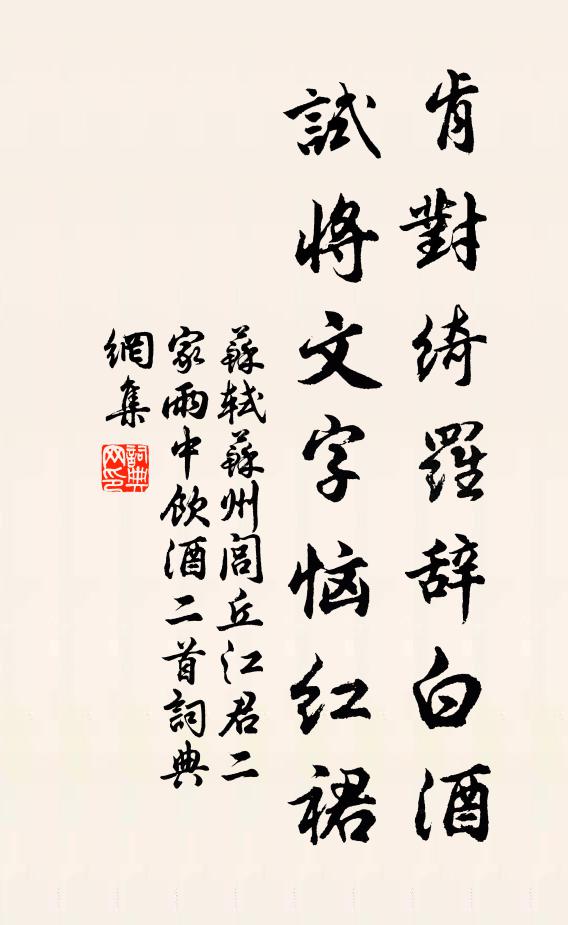 肯對綺羅辞白酒
試將文字恼紅裙
蘇軾蘇州閭丘江君二
家雨中飲酒二首詞典
網集
詞典
网印